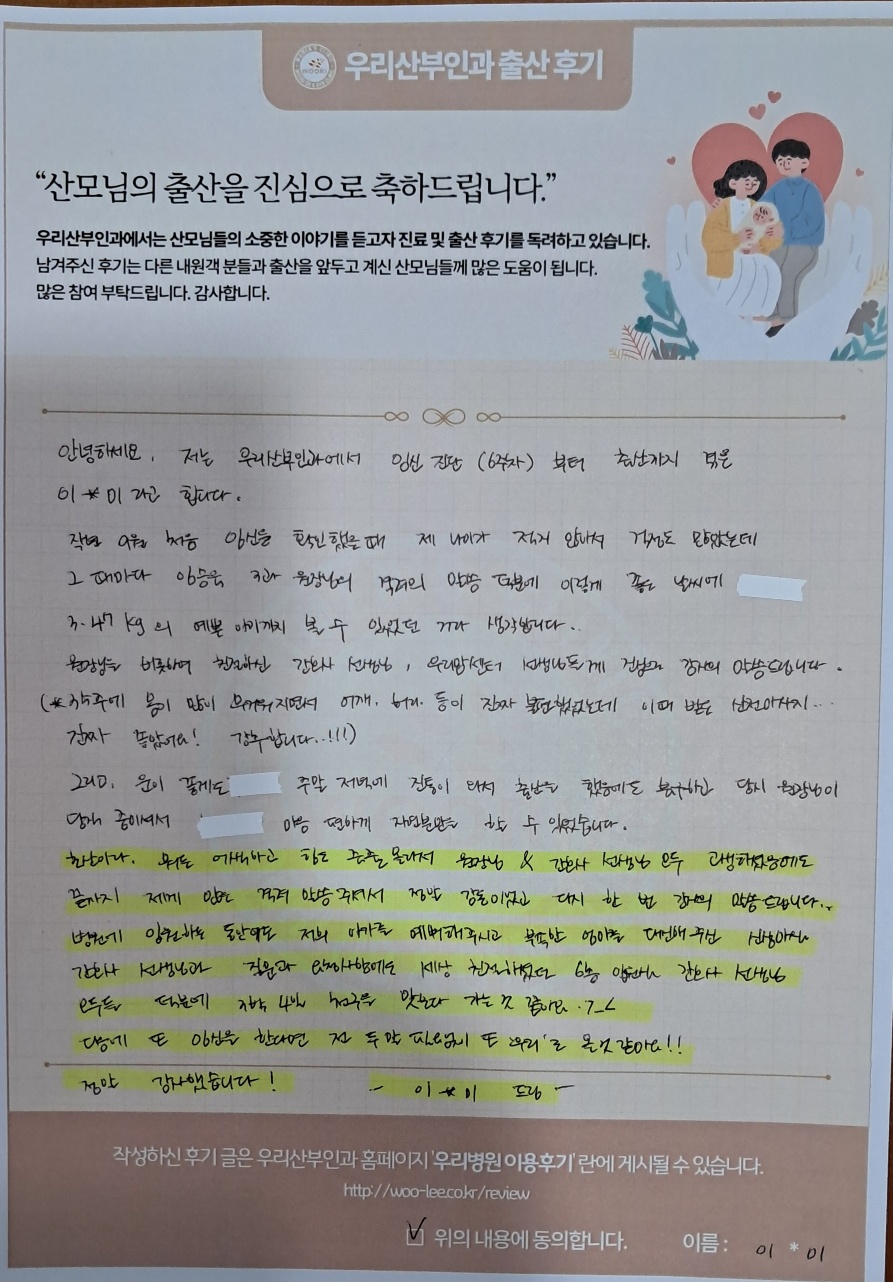 우리산부인과 출산 후기
“산모님의 출산을 진심으로 축하드립니다.”
우리산부인과에서는 산모님들의 소중한 이야기를 듣고자 진료 및 출산 후기를 독려하고 있습니다.
남겨주신 후기는 다른 내원객 분들과 출산을 앞두고 계신 산모님들께 많은 도움이 됩니다.
많은 참여 부탁드립니다. 감사합니다.
안녕하세요. 저는 우리산부인과에서 임신 진단 (6주차) 부터 출산까지 겪은
이*미 라고 합니다.
작년 9월 처음 임신을 확인했을때 제 나이가 적지 않아서 걱정도 많았는데
그 때마다 이승욱 3과 원장님의 격려의 말씀 덕분에 이렇게 좋은 날씨에
3.47kg의 예쁜 아기까지 볼 수 있었던 거라 생각합니다..
원장님을 비롯하여 친절하신 간호사 선생님, 우리맘센터 선생님들께 진심으로 감사의 말씀드립니다.
(*35주에 몸이 많이 무거워지면서 어깨, 허리 등이 진짜 불편했었는데 이때 받은 산전마사지...
진짜 좋았어요! 강추합니다..!!!)
그리고, 운이 좋게도 주말 저녁에 진통이 와서 출산을 했음에도 불구하고 당시 원장님이
당직 중이셔서 마음 편하게 자연분만을 할 수 있었습니다.
초산이라, 뭐든 어색하고 힘도 줄줄 몰라서 원장님 & 간호사 선생님 모두 고생하셨음에도
끝까지 제게 격려 말씀주셔서 정말 감동이었고 다시 한 번 감사의 말씀드립니다..
병원에 입원하는 동안에도 저희 아가를 예뻐해주시고 부족한 엄마를 대신해주신 신생아실
간호사 선생님과 질문과 요청사항에도 세상 친절하셨던 6층 입원실 간호사 선생님
모두들 덕분에 3박 4일 천국을 맛보다 가는것 같아요.ㄱ_ㄴ
다음에 또 임신을 한다면 전 두말 필요없이 또 '우리'로 올것 같아요!!
정말 감사했습니다!
- 이*미 드림 -
작성하신 후기 글은 우리산부인과 홈페이지 '우리병원 이용후기' 란에 게시될 수 있습니다.
http://woo-lee.co.kr/review
위의 내용에 동의합니다. 이름 : 이*미